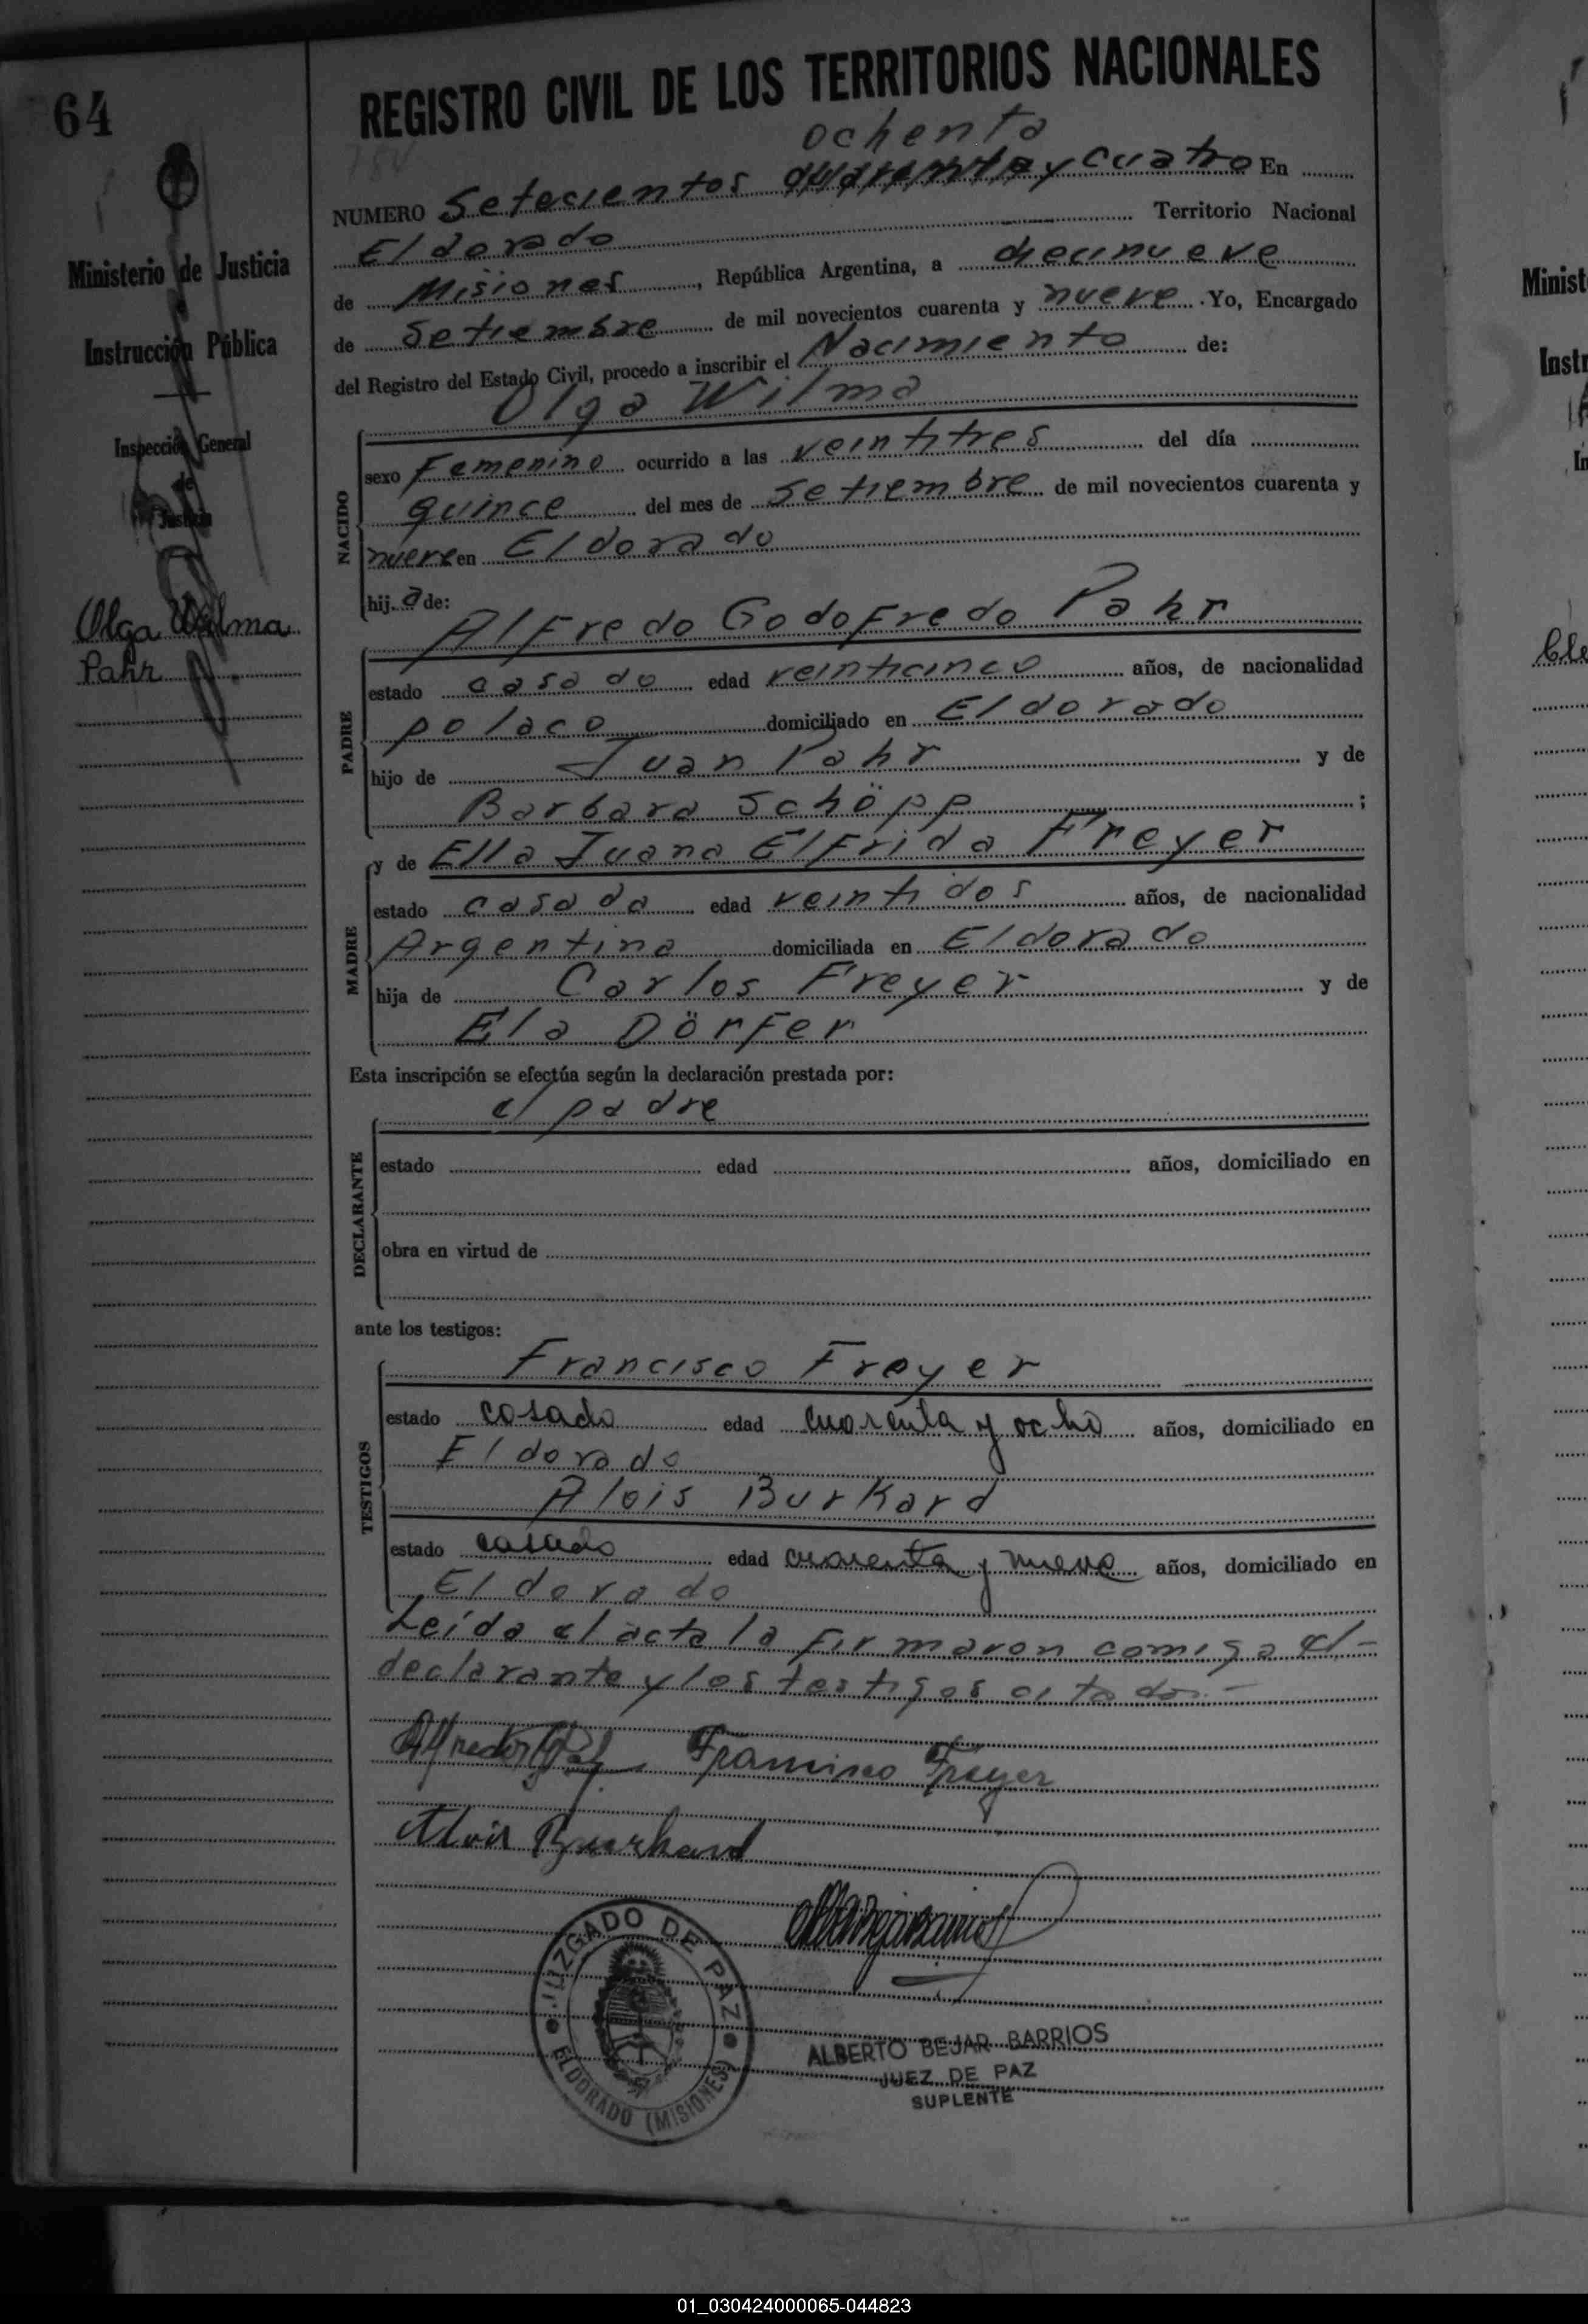 64
REGISTRO CIVIL DE LOS TERRITORIOS NACIONALES
ochenta
NUMERO Setecientos quarenta y cuatro En
Eldorado Territorio Nacional
de Misiones, República Argentina, a diecinueve
de Setiembre de mil novecientos cuarenta y nueve. Yo, Encargado
del Registro del Estado Civil, procedo a inscribir el Nacimiento de:
Olga Wilma
NACIDO
sexo Femenino ocurrido a las veintitres del día
quince del mes de Setiembre de mil novecientos cuarenta y
nueve en Eldorado
hija de:
Alfredo Godofredo Pahr
PADRE
estado casado edad veinticinco años, de nacionalidad
polaco domiciliado en Eldorado
hijo de Juan Pahr y de
Barbara Schöpp;
MADRE
y de Ella Juana Elfrida Freyer
estado casada edad veintidos años, de nacionalidad
Argentina domiciliada en Eldorado
hija de Carlos Freyer y de
Ela Dörfer
Esta inscripción se efectúa según la declaración prestada por:
el padre
DECLARANTE
estado edad años, domiciliado en
obra en virtud de
ante los testigos:
TESTIGOS
Francisco Freyer
estado casado edad cuarenta y ocho años, domiciliado en
Eldorado
Alois Burkard
estado casado edad cuarenta y nueve años, domiciliado en
Eldorado
Leída el acta la firmaron comigo el-
declarante y los testigos citados.-
Francisco Freyer
Alois Burkard
JUZGADO DE PAZ
ELDORADO (MISIONES)
ALBERTO BEJAR BARRIOS
JUEZ DE PAZ
SUPLENTE
Ministerio de Justicia
Instrucción Pública
Inspección General
de
Justicia
Olga Wilma
Pahr
Minist
Instr
In
Cle
01_030424000065-044823